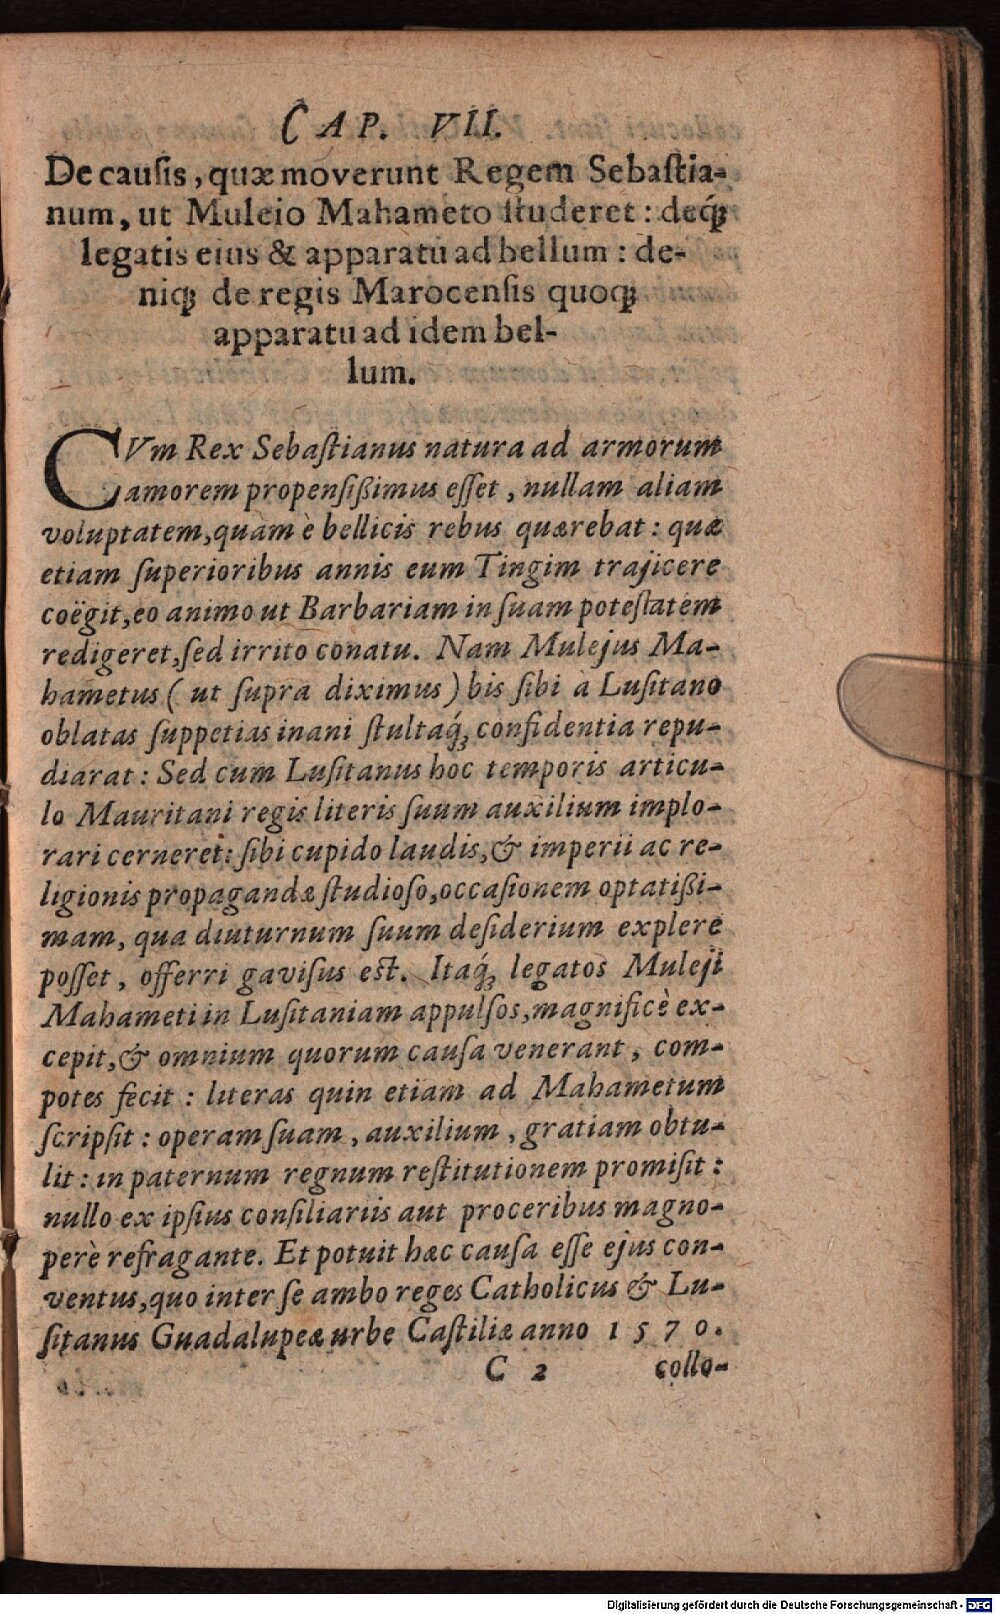 CAP. VII.
De causis, quæ moverunt Regem Sebastia-
num, ut Muleio Mahameto studeret: deq́;
legatis eius & apparatu ad bellum: de-
niq; de regis Marocensis quoq;
apparatu ad idem bel-
lum.
CVm Rex Sebaſtianus natura ad armorum
amorem propenſißimus eſſet, nullam aliam
voluptatem, quàm è bellicis rebus quærebat: quæ
etiam ſuperioribus annis eum Tingim trajicere
coëgit, eo animo ut Barbariam in ſuam poteſtatem
redigeret, ſed irrito conatu. Nam Mulejus Ma-
hametus ( ut ſupra diximus ) bis ſibi à Luſitano
oblatas ſuppetias inani ſtultaq́; confidentia repu-
diarat: Sed cum Luſitanus hoc temporis articu-
lo Mauritani regis literis ſuum auxilium implo-
rari cerneret: ſibi cupido laudis, & imperii ac re-
ligionis propagandæ ſtudioſo, occaſionem optatißi-
mam, qua diuturnum ſuum deſiderium explere
poſſet, offerri gaviſus eſt. Itaq́; legatos Muleji
Mahameti in Luſitaniam appulſos, magnificè ex-
cepit, & omnium quorum cauſa venerant, com-
potes fecit: literas quin etiam ad Mahametum
ſcripſit: operam ſuam, auxilium, gratiam obtu-
lit: in paternum regnum reſtitutionem promiſit:
nullo ex ipſius conſiliariis aut proceribus magno-
perè refragante. Et potuit hæc cauſa eſſe ejus con-
ventus, quo inter ſe ambo reges Catholicus & Lu-
ſitanus Guadalupeæ urbe Caſtiliæ anno 1570.
C 2 collo-
Digitalisierung gefördert durch die Deutsche Forschungsgemeinschaft - DFG